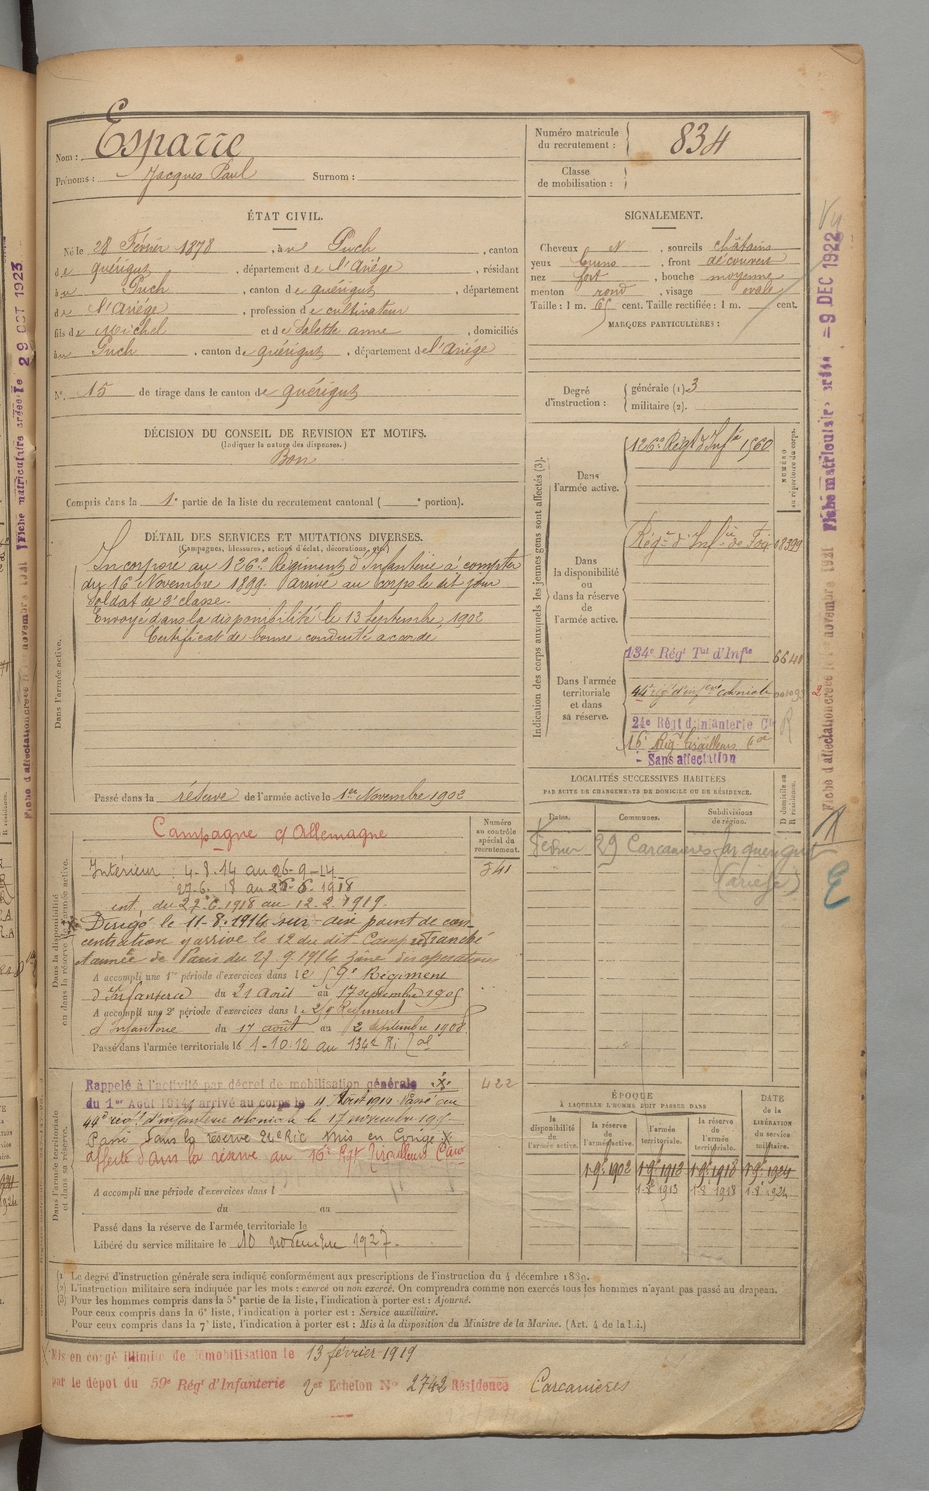 Nom : Esparre
Prénoms : Jacques Paul Surnom :
Numéro matricule du recrutement : 834
Classe de mobilisation :
ÉTAT CIVIL.
Né le 28 Février 1878, à Puch, canton
de quérigut, département de l'Ariége, résidant
à Puch, canton de quérigut, département
de l'Ariége, profession de cultivateur
fils de Michel et de Salette anne, domiciliés
à Puch, canton de quérigut, département de l'Ariége
N° 15 de tirage dans le canton de quérigut
DÉCISION DU CONSEIL DE REVISION ET MOTIFS.
(Indiquer la nature des dispenses.)
Bon
Compris dans la 1e partie de la liste du recrutement cantonal ( e portion).
SIGNALEMENT.
Cheveux N, sourcils châtains
yeux bruns, front découvert
nez fort, bouche moyenne
menton rond, visage ovale
Taille : 1 m. 65 cent. Taille rectifiée : 1 m. cent.
MARQUES PARTICULIÈRES :
Degré d'instruction : générale (1). 3
militaire (2).
DÉTAIL DES SERVICES ET MUTATIONS DIVERSES.
(Campagnes, blessures, actions d'éclat, décorations, etc.)
Dans l'armée active.
Incorporé au 126e Régiment d'Infanterie à compter
du 16 Novembre 1899. Arrivé au corps le dit jour
Soldat de 2e classe.
Envoyé dans la disponibilité le 13 Septembre 1902
Certificat de bonne conduite accordé
Passé dans la réserve de l'armée active le 1er Novembre 1902
Indication des corps auxquels les jeunes gens sont affectés (3).
NUMÉRO au répertoire du corps.
Dans l'armée active.
126e Régt d'Infie 1560
Dans la disponibilité ou dans la réserve de l'armée active.
Régt d'Infie de Foix 18399
Dans l'armée territoriale et dans sa réserve.
134e Régt Tal d'Infie 6640
44e régt d'infie coloniale
24e Régt d'Infanterie Cle
16e Régt tirailleurs
Sans affectation
LOCALITÉS SUCCESSIVES HABITÉES
PAR SUITE DE CHANGEMENTS DE DOMICILE OU DE RÉSIDENCE.
Dates. Communes. Subdivisions de région. D domicile ou R résidence.
février 29 Carcanières par quérigut
(ariège)
Numéro au contrôle spécial du recrutement.
341
Dans la disponibilité ou dans la réserve de l'armée active.
Campagne c/ Allemagne
Intérieur : 4-8-14 au 26-9-14
int. du 27-6-1918 au 12-2-1919.
Dirigé le 11-8-1914 sur aix point de con-
centration y arrive le 12 du dit. Camp retranché
A accompli une 1re période d'exercices dans le 59e Régiment
d'Infanterie du 21 Août au 17 septembre 1905
A accompli une 2e période d'exercices dans le 59 Régiment
d'Infanterie du 17 août au 2 septembre 1908
Passé dans l'armée territoriale le 1-10-12 au 134e Ri
Dans l'armée territoriale et dans sa réserve.
Rappelé à l'activité par décret de mobilisation générale 422
du 1er Août 1914, arrivé au corps le 4 Août 1914. Passé au
44e régt d'infanterie coloniale le 17 novembre
Passé dans la réserve 24e Ric mis en congé
affecté dans la réserve au 16e Rgt Tirailleurs
A accompli une période d'exercices dans l
du au
Passé dans la réserve de l'armée territoriale le
Libéré du service militaire le 10 novembre 1927.
ÉPOQUE
À LAQUELLE L'HOMME DOIT PASSER DANS
la disponibilité de l'armée active. la réserve de l'armée active. l'armée territoriale. la réserve de l'armée territoriale. DATE de la LIBÉRATION du service militaire.
1-9e 1902 1-9e 1912 1-9e 1918 1-9e 1924
1-8e 1913 1-8e 1918 1-8e 1924
(1) Le degré d'instruction générale sera indiqué conformément aux prescriptions de l'instruction du 4 décembre 1889.
(2) L'instruction militaire sera indiquée par les mots : exercé ou non exercé. On comprendra comme non exercés tous les hommes n'ayant pas passé au drapeau.
(3) Pour les hommes compris dans la 5e partie de la liste, l'indication à porter est : Ajourné.
Pour ceux compris dans la 6e liste, l'indication à porter est : Service auxiliaire.
Pour ceux compris dans la 7e liste, l'indication à porter est : Mis à la disposition du Ministre de la Marine. (Art. 4 de la loi.)
Mis en congé illimité de démobilisation le 13 février 1919
par le dépôt du 59e Régt d'Infanterie 2er Echelon No 2742 Résidence Carcanières
Fiche matriculaire créée le 29 OCT 1923
Fiche matriculaire créée -9 DEC 1922